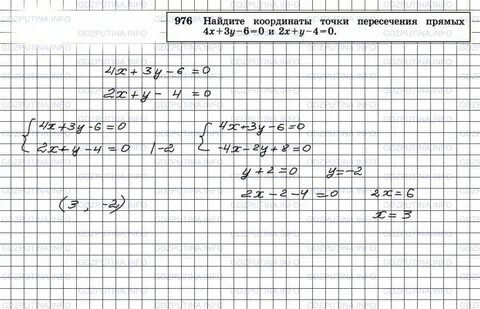 976 Найдите координаты точки пересечения прямых
4x+3y-6=0 и 2x+y-4=0.
4x+3y-6=0
2x+y-4=0
4x+3y-6=0
2x+y-4=0 |-2
4x+3y-6=0
-4x-2y+8=0
y+2=0 y=-2
2x-2-4=0 2x=6
x=3
(3; -2)
GDZPUTINA.INFO